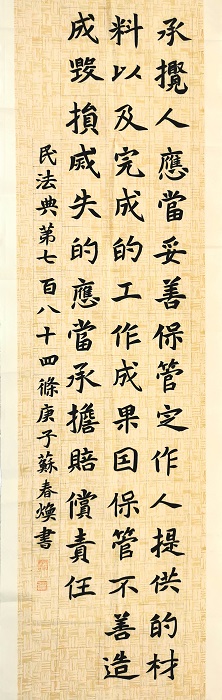 承攬人應當妥善保管定作人提供的材
料以及完成的工作成果因保管不善造
成毀損烕失的應當承擔賠償責任
民法典第七百八十四條庚子蘇春煥書